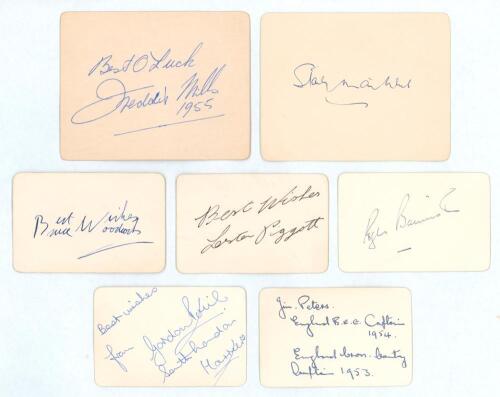 Best O'Luck
Freddie Mills
1955
Stanley Matthews
Best Wishes
Bruce Woodcock
Best Wishes
Lester Piggott
Roger Bannister
Best wishes
from Gordon Pirie
South London
Harriers
Jim Peters.
England B.E.G. Captain
1954.
England Cross-Country
Captain 1953.